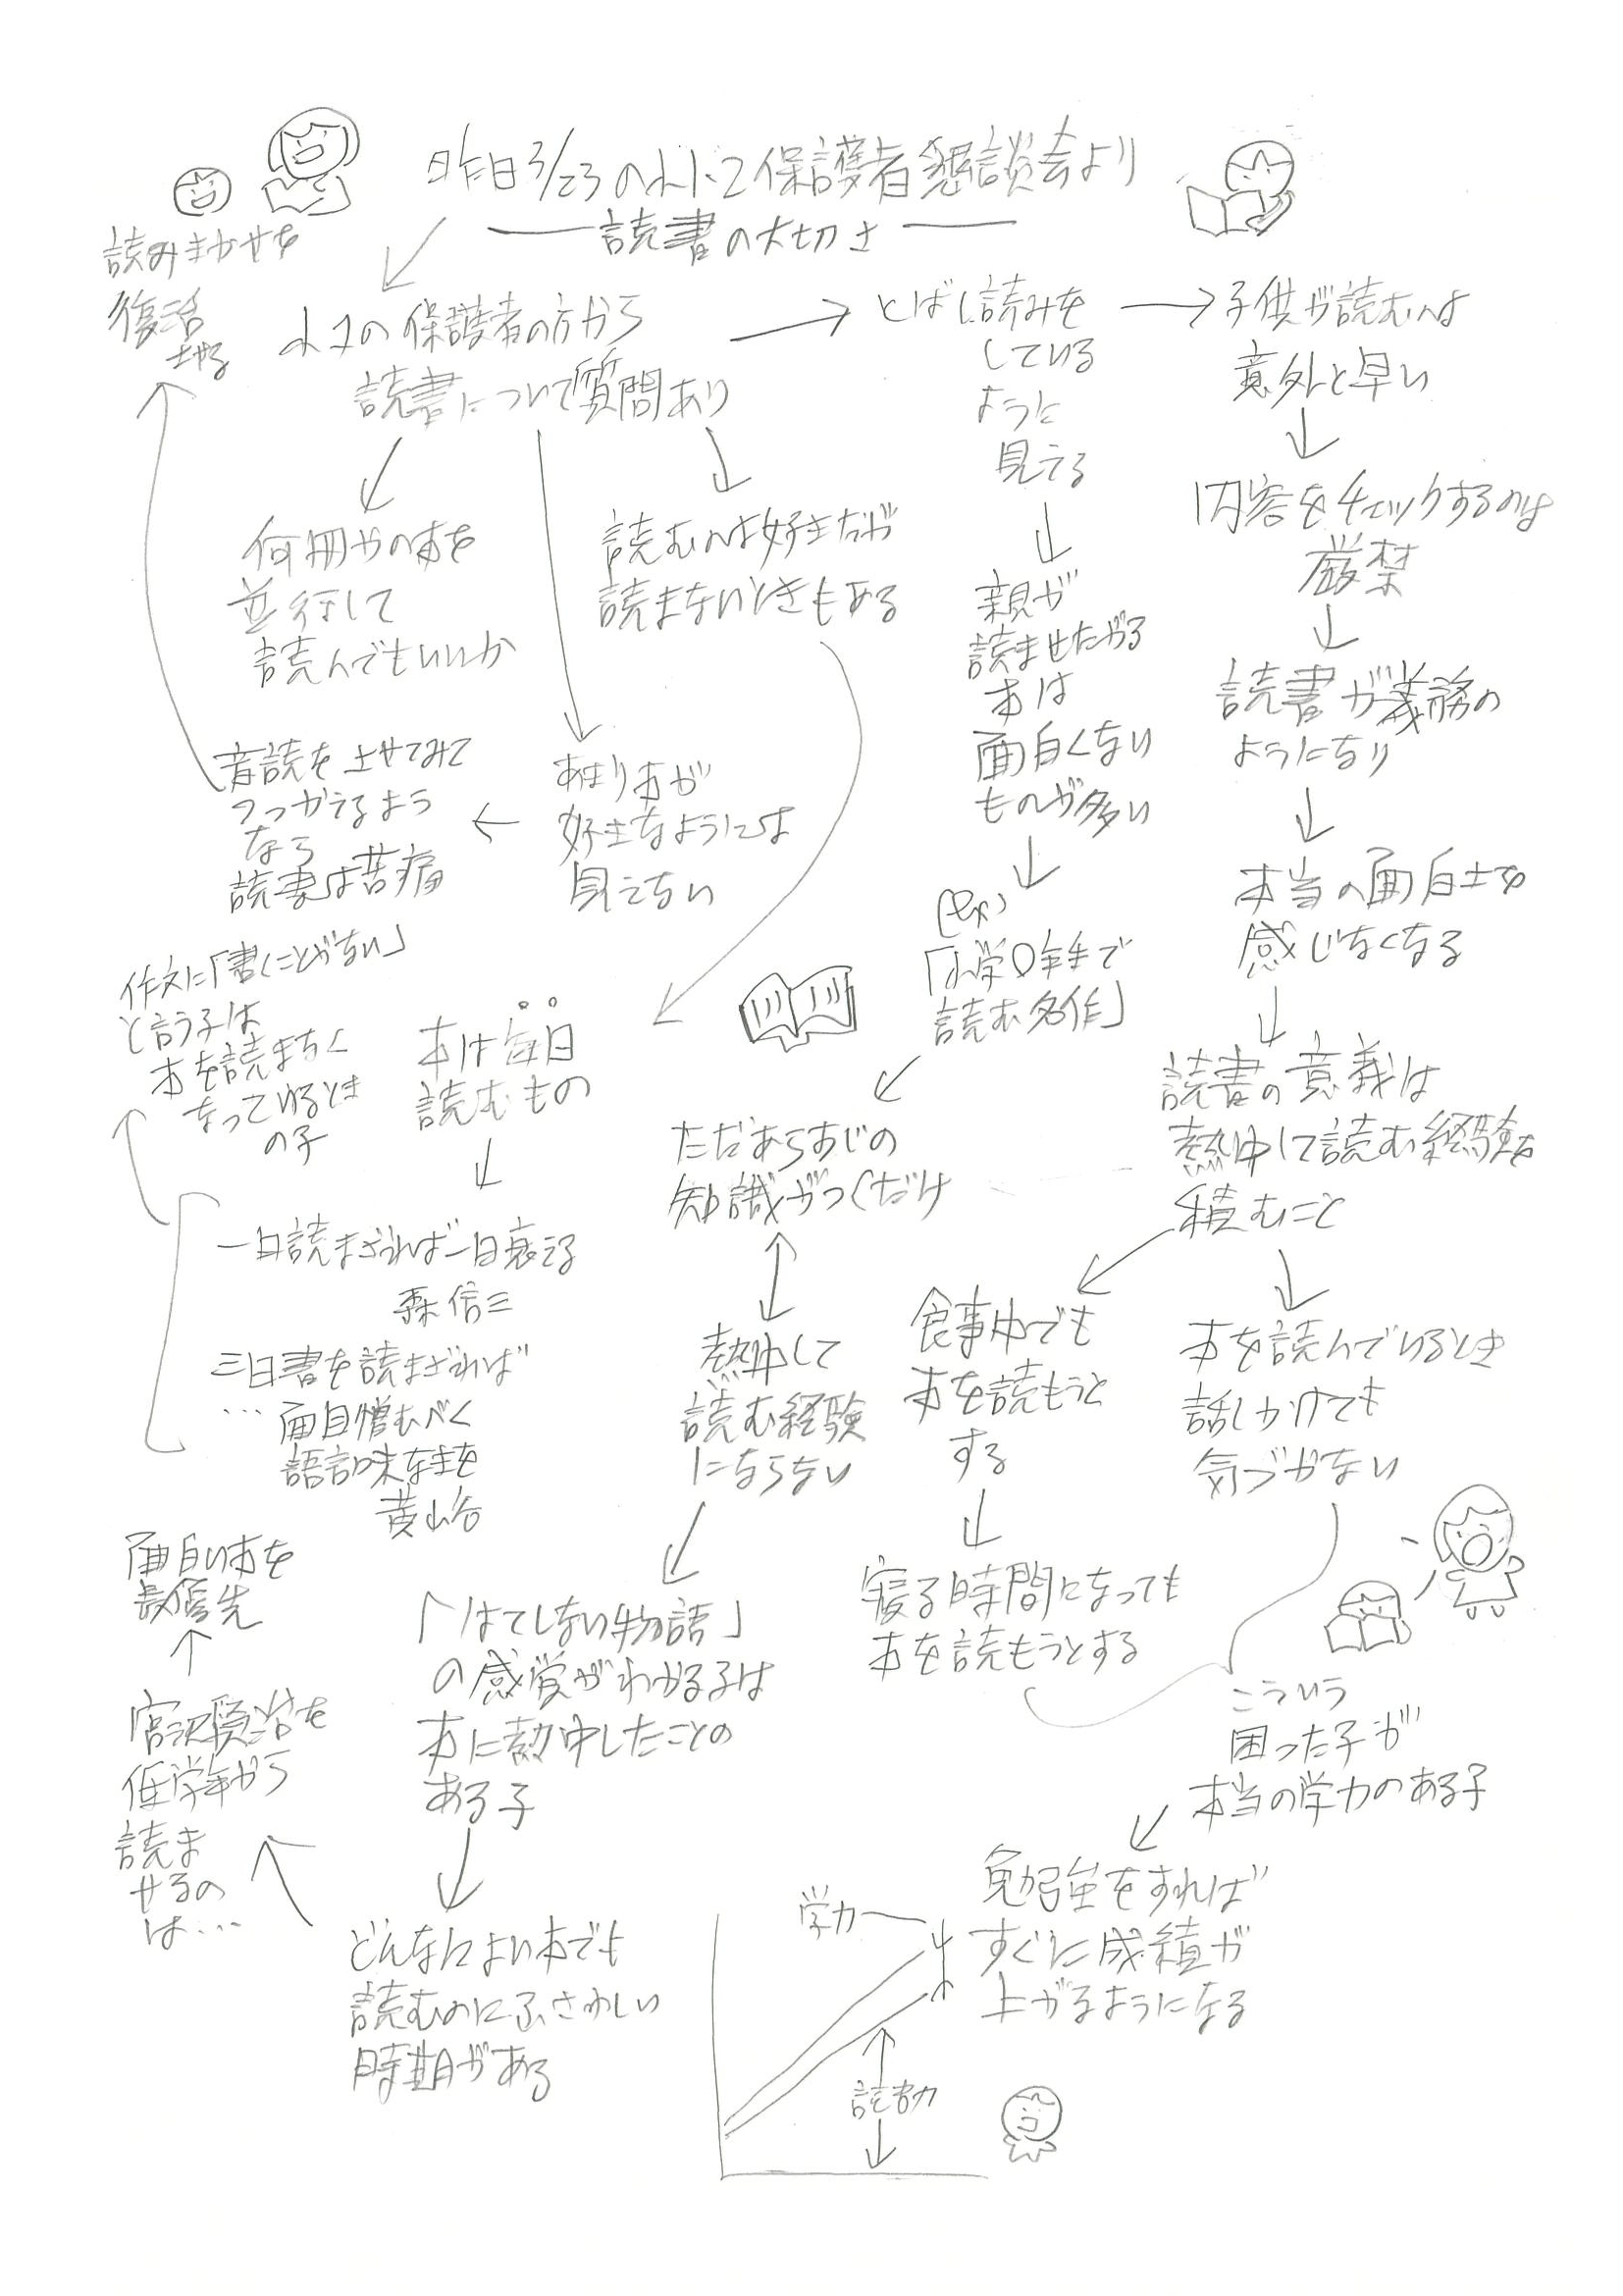 昨日3/23の小1・2保護者懇談会より
読書の大切さ
小1の保護者の方から
読書について質問あり
何冊かの本を
並行して
読んでもいいか
読むのは好きだが
読まないときもある
あまり本が
好きなようには
見えない
音読をさせてみて
つっかえるよう
なら
読書は苦痛
読みきかせを
復活
させる
本は毎日
読むもの
一日読まざれば一日衰える
森信三
三日書を読まざれば
…面目憎むべく
語言味なきを
黄山谷
作文に「書くことがない」
と言う子は
本を読まなく
なっているとき
の子
とばし読みを
している
ように
見える
親が
読ませたがる
本は
面白くない
ものが多い
(ex)
「小学〇年生で
読む名作」
ただあらすじの
知識がつくだけ
熱中して
読む経験
にならない
「はてしない物語」
の感覚がわかる子は
本に熱中したことの
ある子
どんなによい本でも
読むのにふさわしい
時期がある
宮沢賢治を
低学年から
読ま
せるの
は…
面白い本を
最優先
子供が読むのは
意外と早い
内容をチェックするのは
厳禁
読書が義務の
ようになり
本当の面白さを
感じなくなる
読書の意義は
熱中して読む経験を
積むこと
食事中でも
本を読もうと
する
寝る時間になっても
本を読もうとする
本を読んでいるとき
話しかけても
気づかない
こういう
困った子が
本当の学力のある子
勉強をすれば
すぐに成績が
上がるようになる
学力
読書力